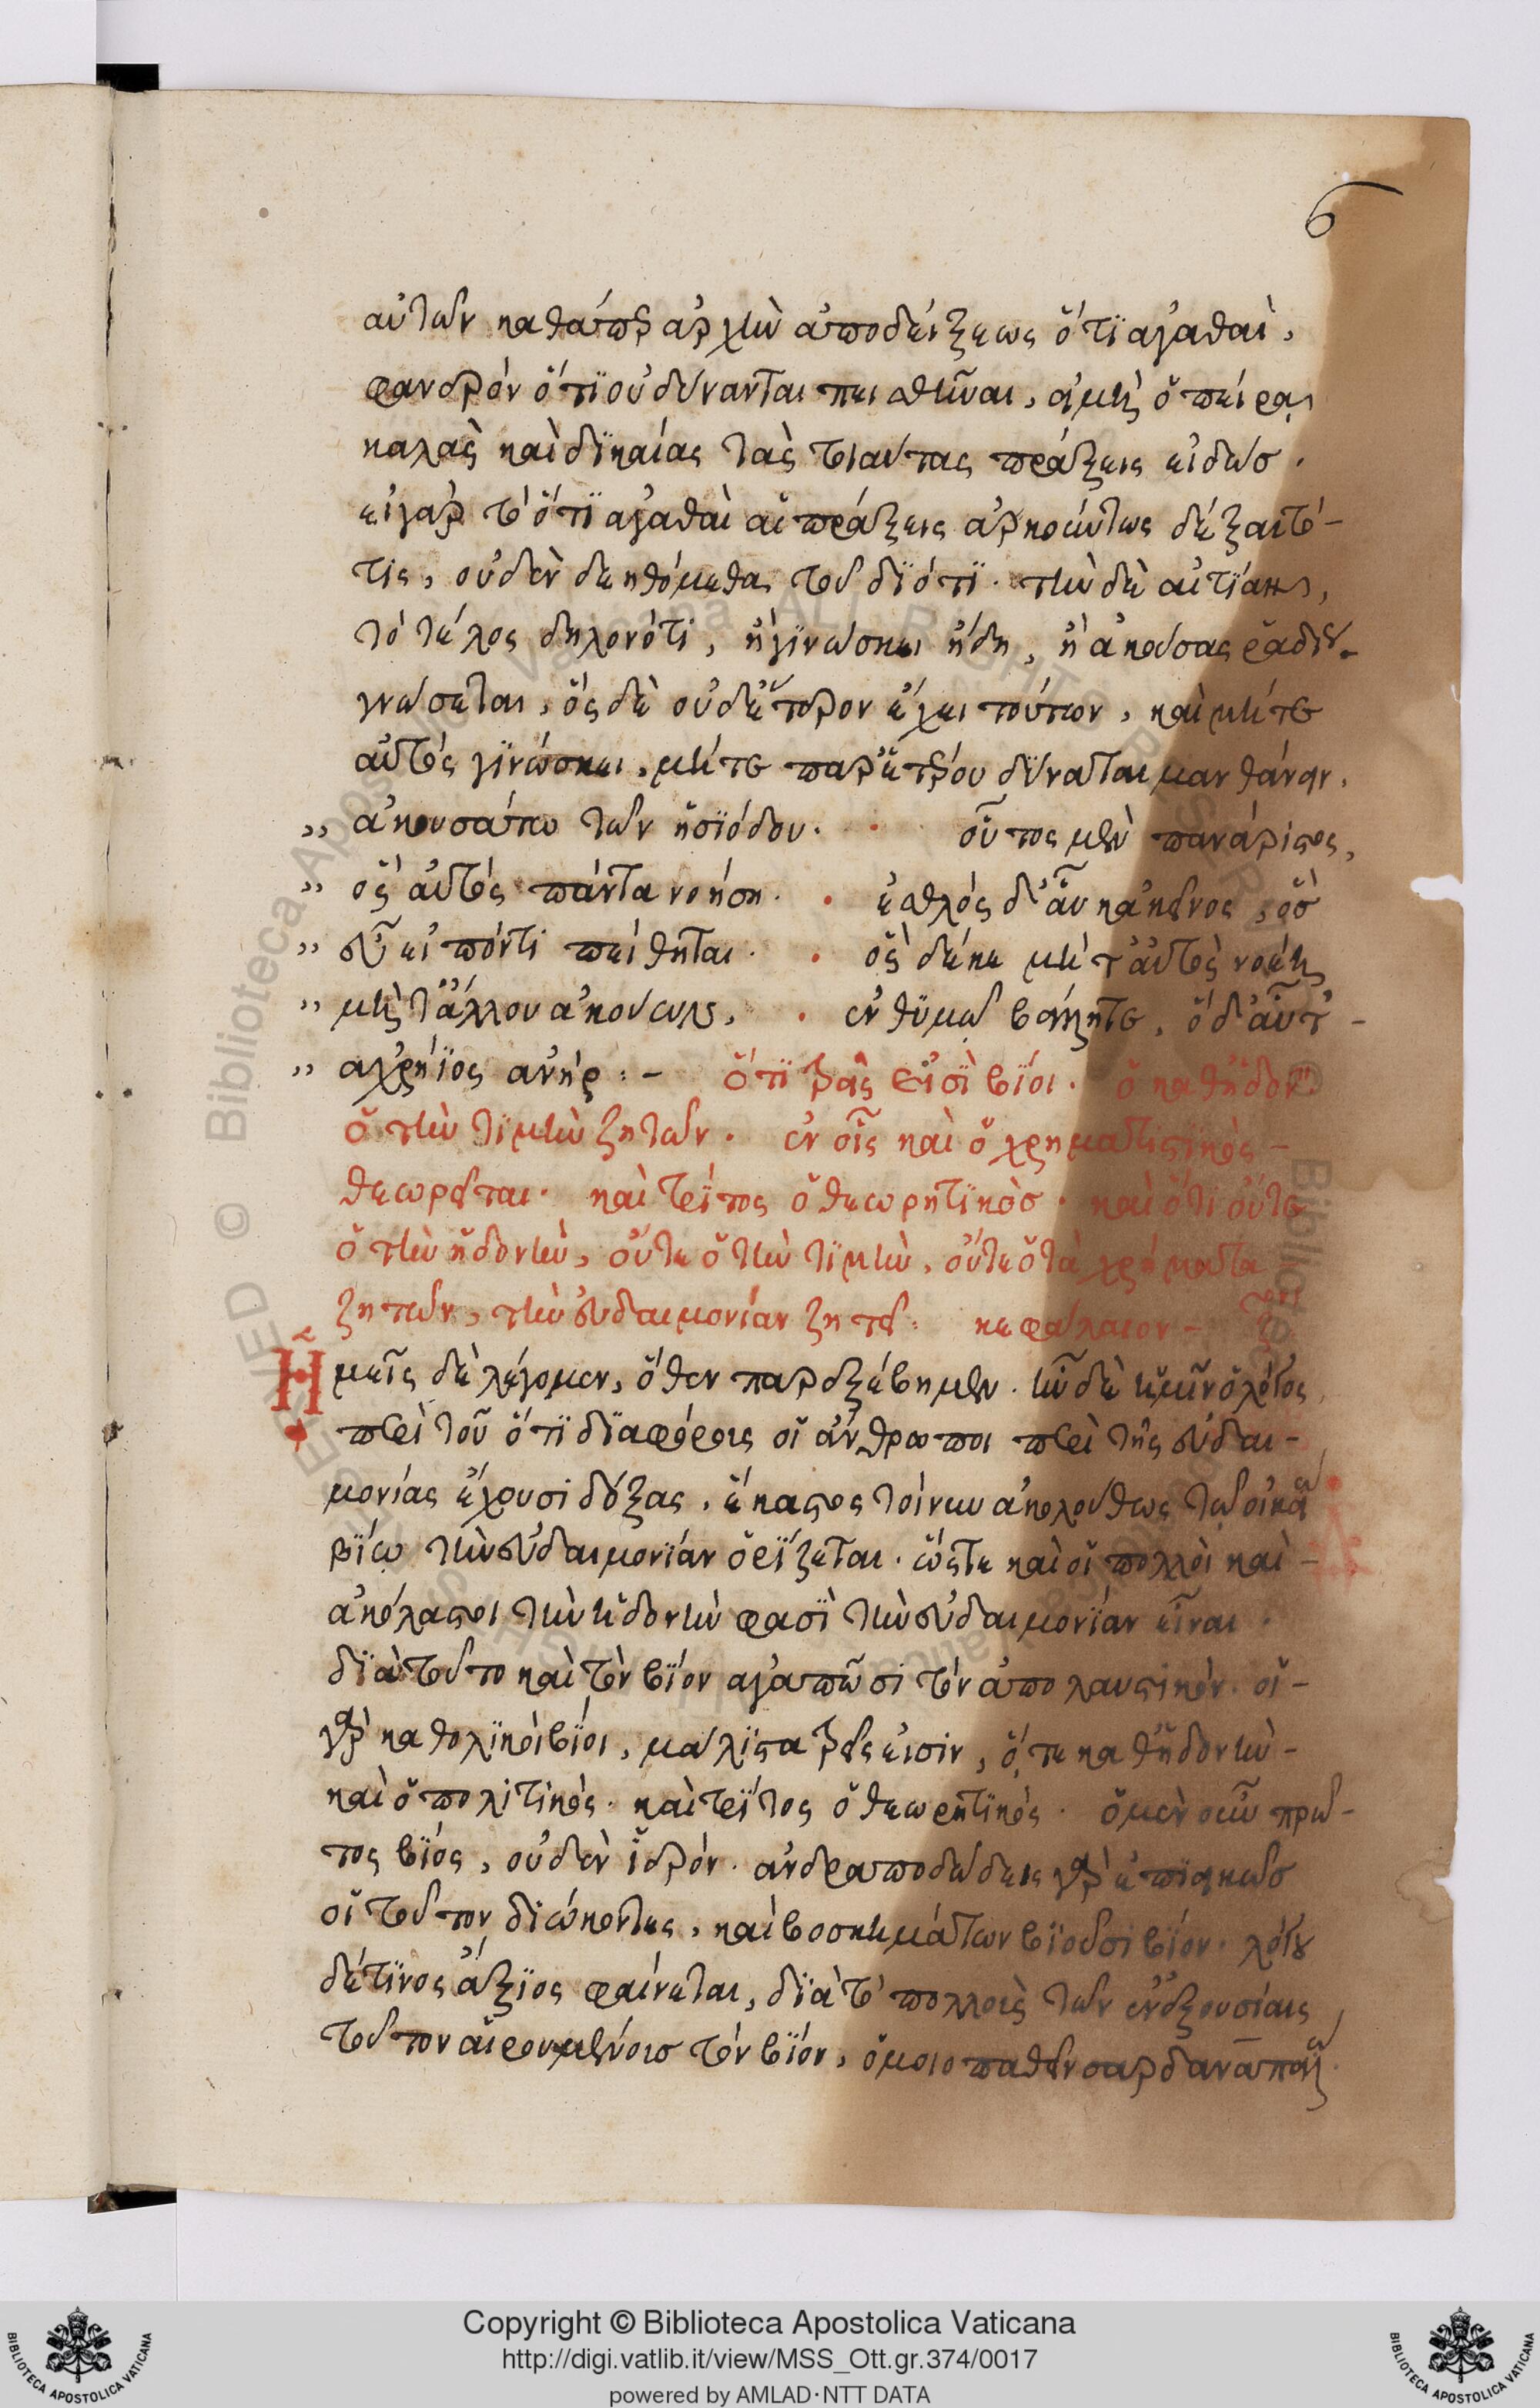 6
αὐτῶν καθάπερ ἀρχὴν ἀποδείξεως ὅτϊ ἀγαθαὶ,
φανερὸν ὅτϊ οὐ δύνανται πεισθῆναι, εἰ μὴ ὁ πείρᾳ
καλὰς καὶ δϊκαίας τὰς τοιαύτας πράξεις εἰδώσ.
εἰ γὰρ τὸ ὅτϊ ἀγαθαὶ αἱ πράξεις ἀρκούντως δέξαιτό-
τις, οὐδὲν δεηθόμεθα τοῦ δϊότϊ. τὴν δὲ αἰτίαν,
τὸ τέλος δηλονότι, ἢ γϊνώσκει ἤδη, ἢ ἀκούσας ῥαδίως
γνώσεται, ὃς δὲ οὐδέτερον ἔχει τούτων, καὶ μήτε
αὐτὸς γϊνώσκει, μήτε παρ' ἑτέρου δύναται μανθάνειν.
„ ἀκουσάτω τῶν ἡσϊόδου. οὗτος μὲν πανάριστος,
„ ὃς αὐτὸς πάντα νοήση. ἐσθλὸς δ' αὖ κἀκεῖνος, ὃσ
„ εὖ εἰπόντι πείθηται. ὃς δέ κε μήτ' αὐτὸς νοέῃ
„ μήτ' ἄλλου ἀκούων, ἐν θϋμῷ βάλληται, ὁ δ' αὖτ' -
„ ἀχρήϊος ἀνήρ : - ὅτϊ τρεῖς εἰσϊ βϊοι. ὁ καθ' ἡδονήν.
ὁ τὴν τϊμὴν ζητῶν. ἐν οἷς καὶ ὁ χρηματιστϊκὸς -
θεωρεῖται. καὶ τρϊτος ὁ θεωρητϊκὸσ. καὶ ὅτι οὔτε
ὁ τὴν ἡδονὴν, οὔτε ὁ τὴν τϊμὴν, οὔτε ὁ τὰ χρήματα
ζητῶν, τὴν εὐδαιμονίαν ζητεῖ. κεφάλαιον -
Ἡμεῖς δὲ λέγομεν, ὅθεν παρεξέβημεν. ἦν δὲ ἡμῖν ὁ λόγος
περὶ τοῦ ὅτϊ δϊαφόρους οἱ ἄνθρωποι περὶ τῆς εὐδαι-
μονίας ἔχουσι δόξας, ἕκαστος τοίνυν ἀκολούθως τῷ οἰκείῳ
βϊῳ τὴν εὐδαιμονϊαν ὁρϊζεται. ὥστε καὶ οἱ πολλοὶ καὶ -
ἀκόλαστοι τὴν ἡδονὴν φασϊ τὴν εὐδαιμονϊαν εἶναι.
δϊὰ τοῦτο καὶ τὸν βϊον ἀγαπῶσι τὸν ἀπολαυστικόν. οἱ -
γὰρ καθολϊκοὶ βϊοι, μάλϊστα τρεῖς εἰσιν, ὅ, τε καθ' ἡδονὴν -
καὶ ὁ πολϊτϊκός. καὶ τρϊτος ὁ θεωρητϊκός. ὁ μὲν οὖν πρῶ-
τος βϊος, οὐδὲν ἱερόν. ἀνδραποδώδεις γὰρ ἐπϊεικῶσ
οἱ τοῦτον δϊώκοντες, καὶ βοσκημάτων βϊοῦσι βϊον. λόγου
δέ τϊνος ἄξϊος φαίνεται, δϊὰ τὸ πολλοὺς τῶν ἐν ἐξουσίαις
τοῦτον αἱρουμένουσ τὸν βϊον, ὁμοιοπαθεῖν σαρδαναπάλῳ.
Copyright © Biblioteca Apostolica Vaticana
http://digi.vatlib.it/view/MSS_Ott.gr.374/0017
powered by AMLAD·NTT DATA